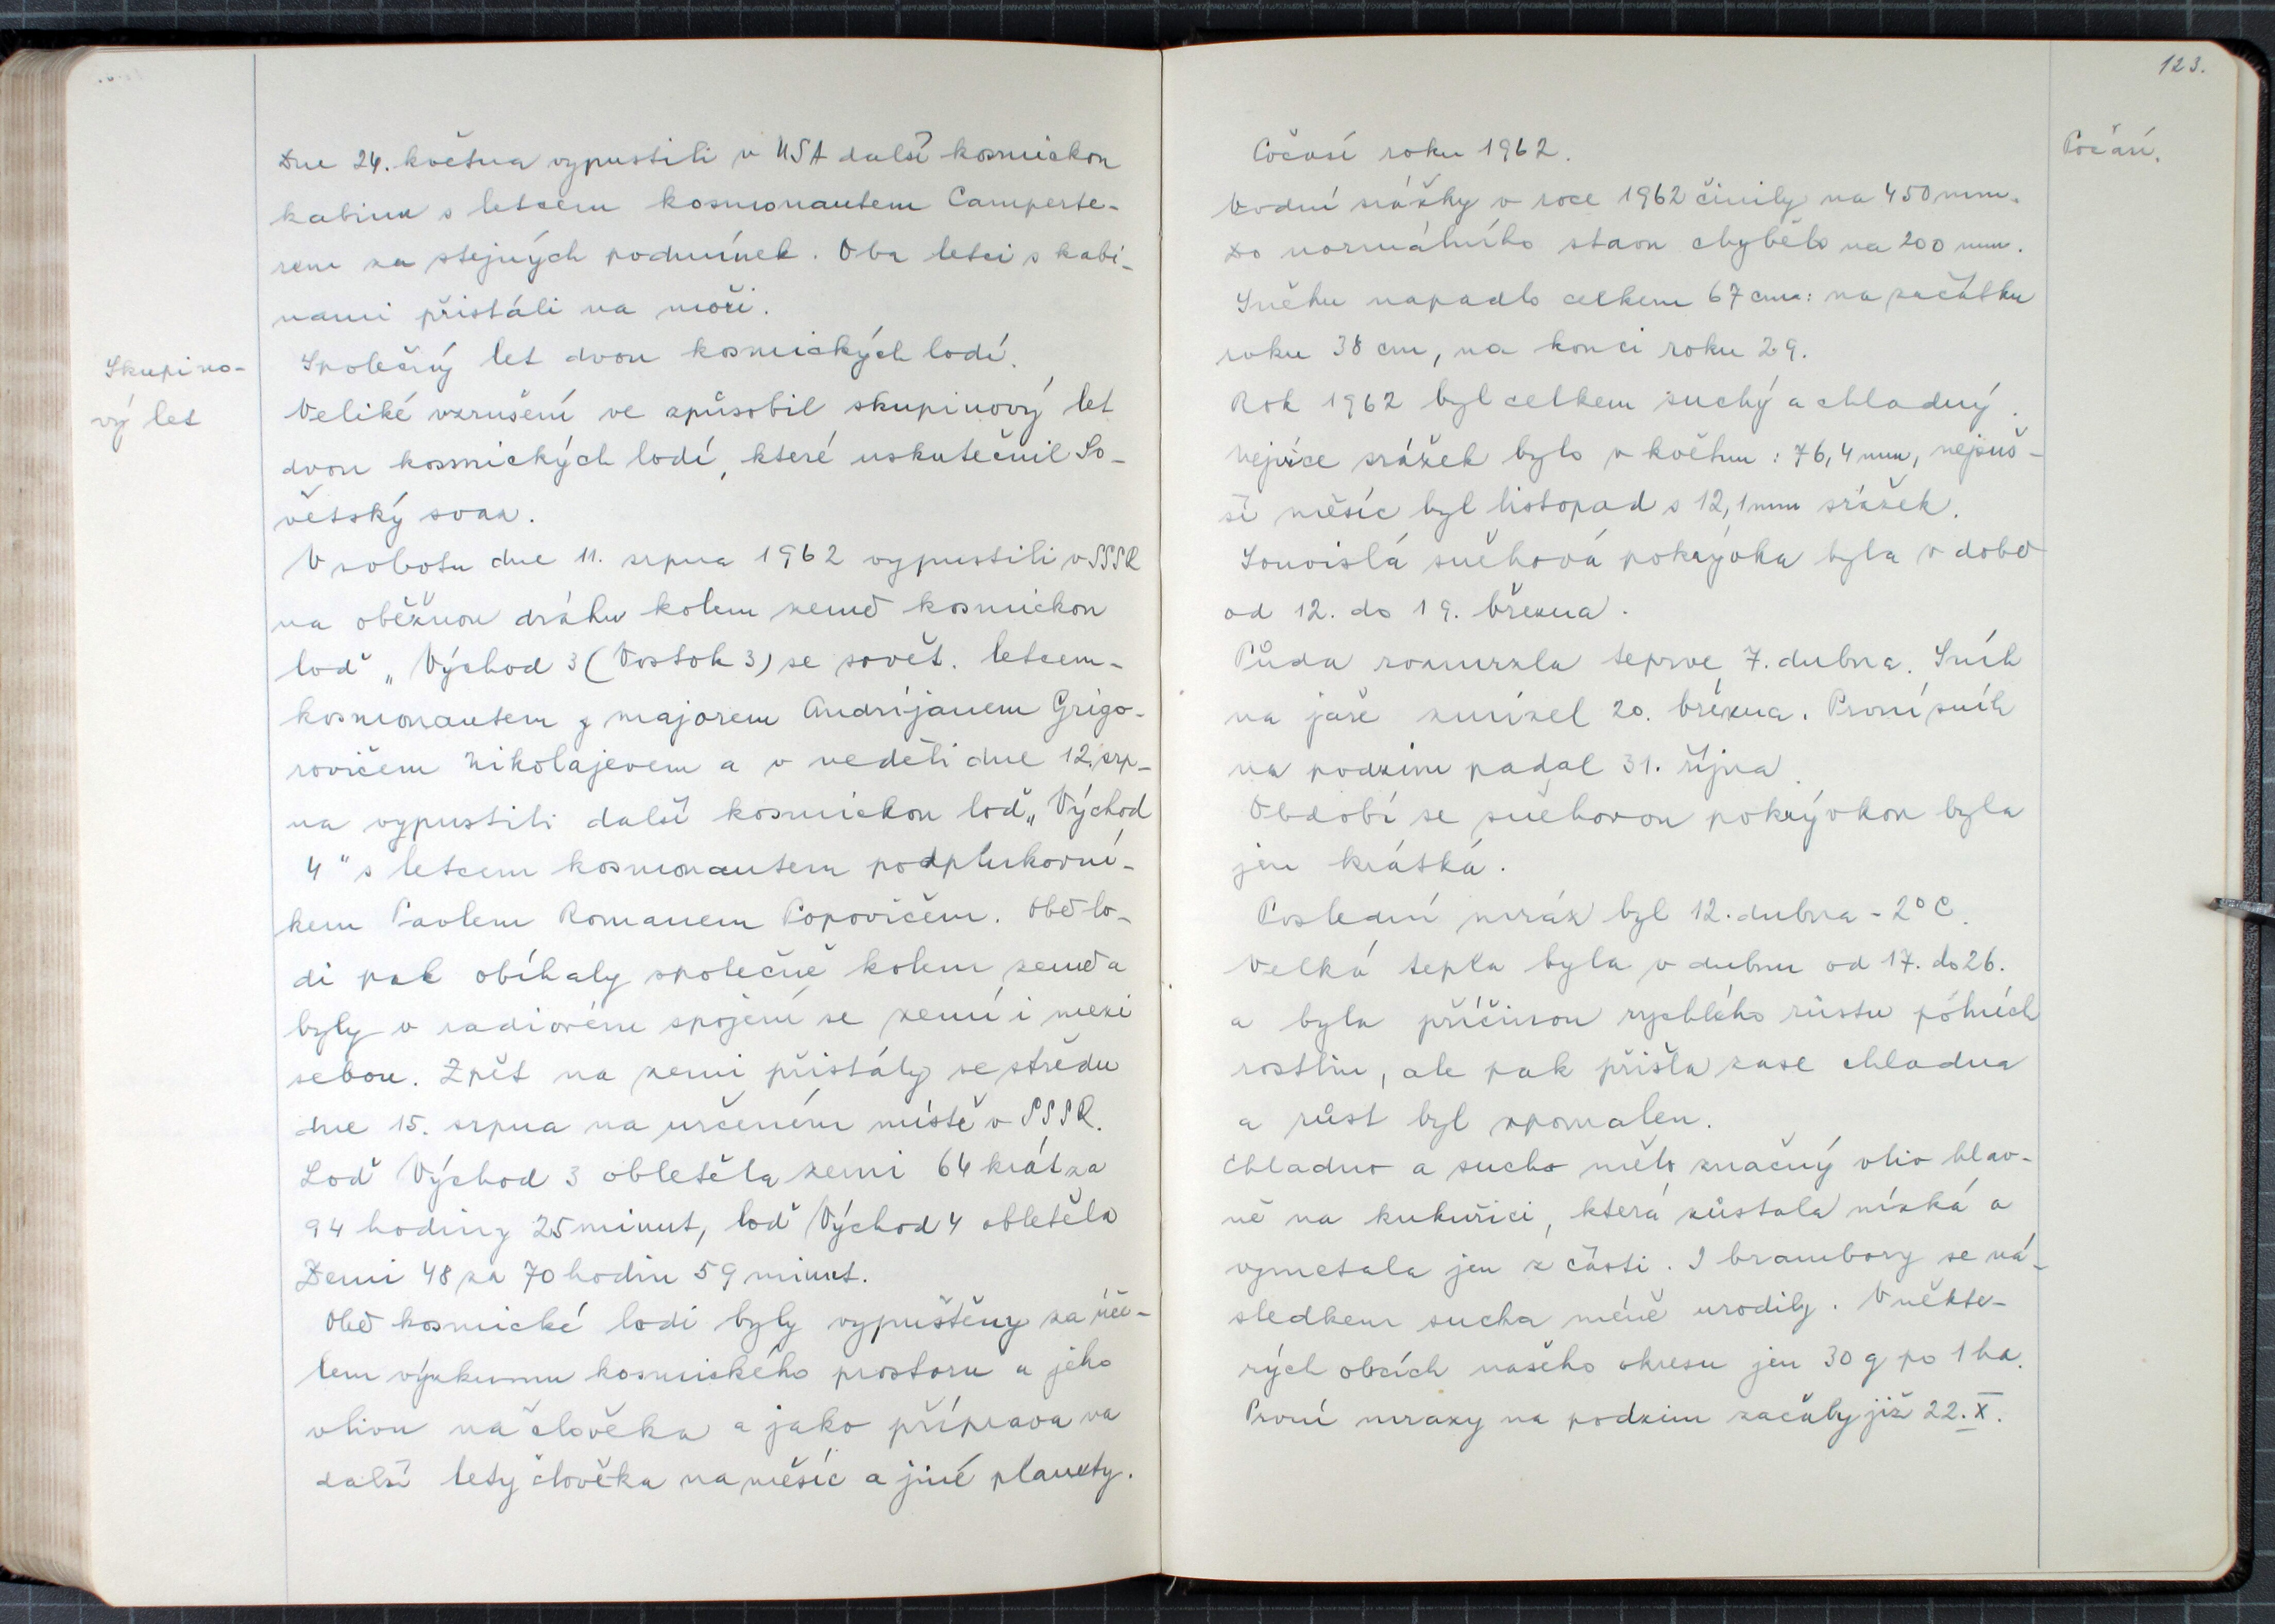 Dne 24. května vypustili v USA další kosmickou
kabinu s letcem kosmonautem Camperte-
rem za stejných podmínek. Oba letci s kabi-
nami přistáli na moři.
Skupino-
vý let
Společný let dvou kosmických lodí.
Veliké vzrušení ve způsobil skupinový let
dvou kosmických lodí, které uskutečnil So-
větský svaz.
V sobotu dne 11. srpna 1962 vypustili v SSSR
na oběžnou dráhu kolem země kosmickou
loď „Východ 3 (Vostok 3) se sovět. letcem-
kosmonautem majorem Andrijanem Grigo-
rovičem Nikolajevem a v neděli dne 12. srp-
na vypustili další kosmickou loď „Východ
4" s letcem kosmonautem podplukovní-
kem Pavlem Romanem Popovičem. Obě lo-
di pak obíhaly společně kolem země a
byly v radiovém spojení se zemí i mezi
sebou. Zpět na zemi přistály ve středu
dne 15. srpna na určeném místě v SSSR.
Loď Východ 3 obletěla zemi 64 krát za
94 hodiny 25 minut, loď Východ 4 obletěla
Zemi 48 za 70 hodin 59 minut.
Obě kosmické lodi byly vypuštěny za úče-
lem výzkumu kosmického prostoru a jeho
vlivu na člověka a jako příprava na
další lety člověka na měsíc a jiné planety.
123.
Počasí.
Počasí roku 1962.
Vodní srážky v roce 1962 činily na 450 mm.
Do normálního stavu chybělo na 200 mm.
Sněhu napadlo celkem 67 cm: na začátku
roku 38 cm, na konci roku 29.
Rok 1962 byl celkem suchý a chladný.
Nejvíce srážek bylo v květnu: 76,4 mm, nejsuš-
ší měsíc byl listopad s 12,1 mm srážek.
Souvislá sněhová pokrývka byla v době
od 12. do 19. března.
Půda rozmrzla teprve 7. dubna. Sníh
na jaře zmizel 20. března. První sníh
na podzim padal 31. října.
Období se sněhovou pokrývkou byla
jen krátká.
Poslední mráz byl 12. dubna - 2° C.
Velká tepla byla v dubnu od 17. do 26.
a byla příčinou rychlého růstu pólních
rostlin, ale pak přišla zase chladna
a růst byl zpomalen.
Chladno a sucho mělo značný vliv hlav-
ně na kukuřici, která zůstala nízká a
vymetala jen z části. I brambory se ná-
sledkem sucha méně urodily. V někte-
rých obcích našeho okresu jen 30 q po 1 ha.
První mrazy na podzim začaly již 22. X.